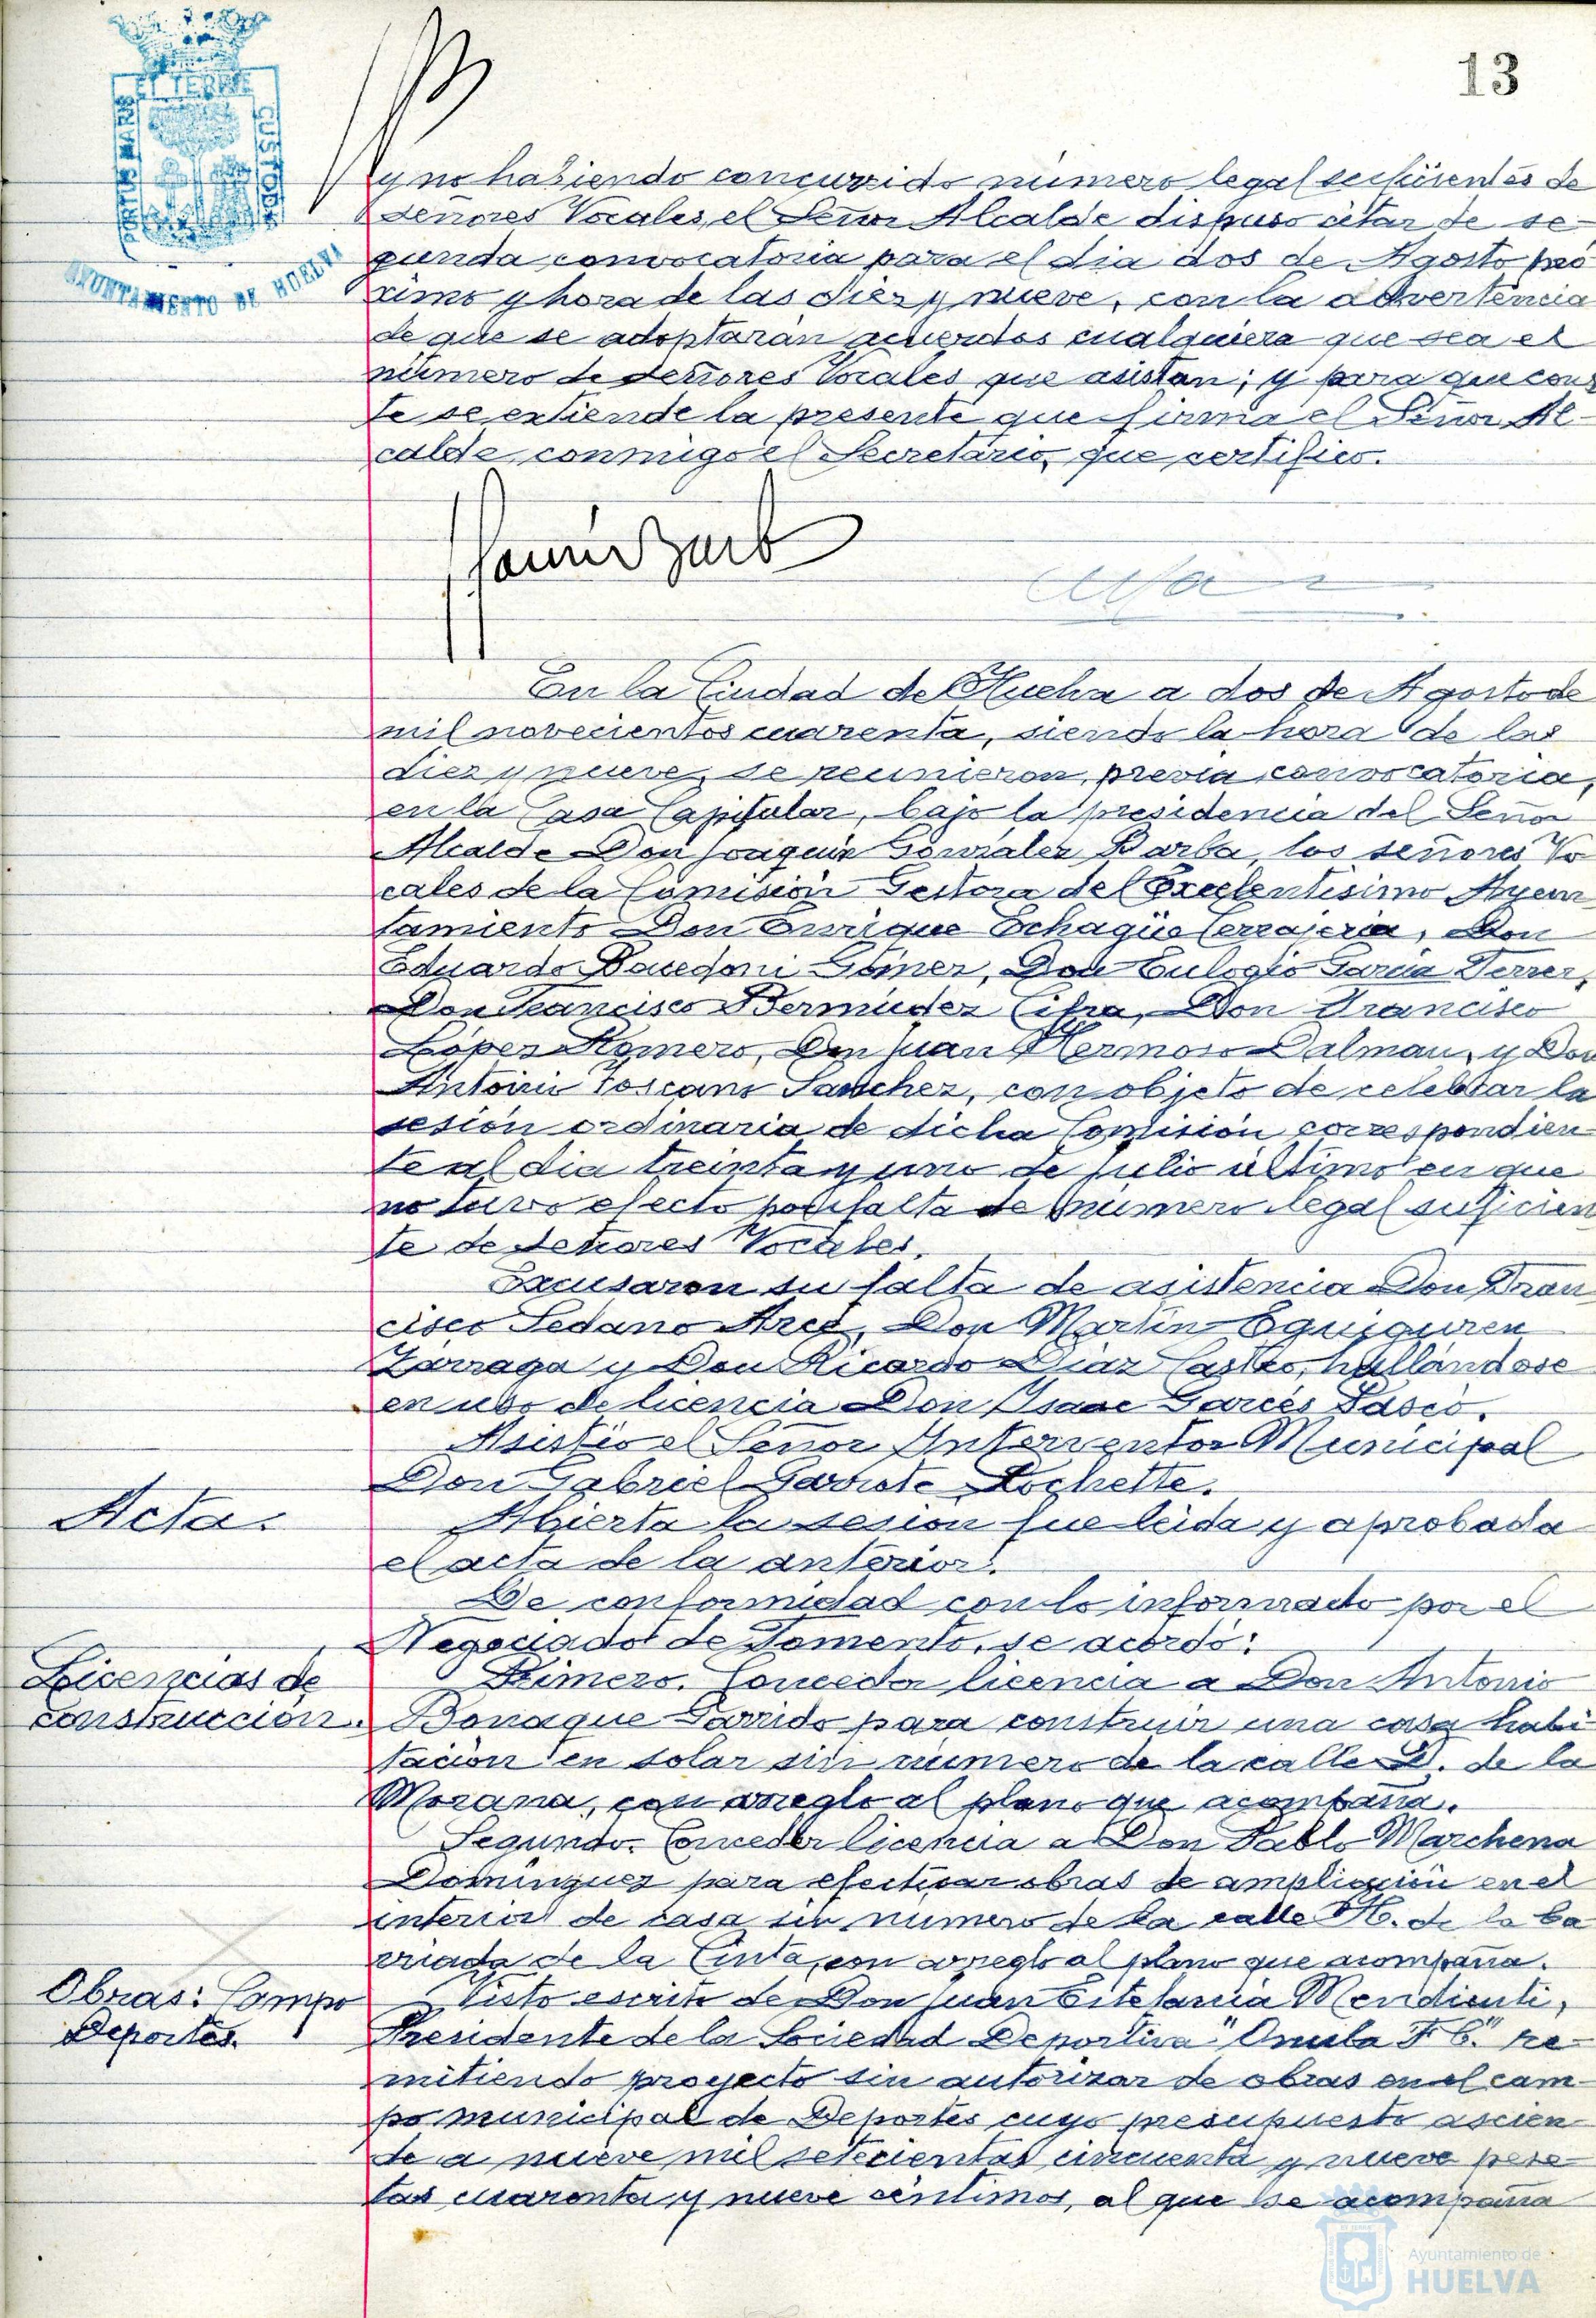 13
PORTUS MARIS ET TERRE CUSTODIA
AYUNTAMIENTO DE HUELVA
y no habiendo concurrido número legal suficientes de
señores Vocales, el Señor Alcalde dispuso citar de se-
gunda convocatoria para el dia dos de Agosto pró
ximo y hora de las diez y nueve, con la advertencia
de que se adoptarán acuerdos cualquiera que sea el
número de señores Vocales que asistan; y para que cons
te se extiende la presente que firma el Señor Al-
calde conmigo el Secretario, que certifico.
En la Ciudad de Huelva a dos de Agosto de
mil novecientos cuarenta, siendo la hora de las
diez y nueve, se reunieron, previa convocatoria,
en la Casa Capitular, bajo la presidencia del Señor
Alcalde Don Joaquin González Barba, los señores Vo
cales de la Comisión Gestora del Excelentisimo Ayun
tamiento Don Enrique Echagüe Cerrajeria, Don
Eduardo Gómez, Don Eulogio Garcia Ferrer,
Don Francisco Bermúdez Cifra, Don Francisco
López Romero, Don Juan Hermoso Dalmau, y Don
Antonio Toscano Sanchez, con objeto de celebrar la
sesión ordinaria de dicha Comisión correspondien-
te al dia treinta y uno de julio último en que
no tuvo efecto por falta de número legal suficien
te de señores Vocales.
Excusaron su falta de asistencia Don Fran
cisco Sedano Arce, Don Martin Eguiguren
Zárraga y Don Ricardo Diaz Castro, hallándose
en uso de licencia Don Isaac Garcés Pasco.
Asistió el Señor Interventor Municipal
Don Gabriel Garrote Rochette.
Acta.
Abierta la sesión fue leida y aprobada
el acta de la anterior.
De conformidad con lo informado por el
Negociado de Fomento, se acordó:
Licencias de
construccion.
Primero. Conceder licencia a Don Antonio
Bonaque Garrido para construir una casa habi
tación en solar sin número de la calle D. de la
Morana, con arreglo al plano que acompaña.
Segundo. Conceder licencia a Don Pablo Marchena
Dominguez para efectuar obras de ampliación en el
interior de casa sin numero de la calle H. de la ba
rriada de la Cinta, con arreglo al plano que acompaña.
Obras: Campo
Deportes.
Visto escrito de Don Juan Estefania Mendicuti,
Presidente de la Sociedad Deportiva "Onuba F C." re-
mitiendo proyecto sin autorizar de obras en el cam-
po municipal de Deportes cuyo presupuesto ascien-
de a nueve mil setecientas cincuenta y nueve pese-
tas cuarenta y nueve céntimos, al que se acompaña
Ayuntamiento de
HUELVA